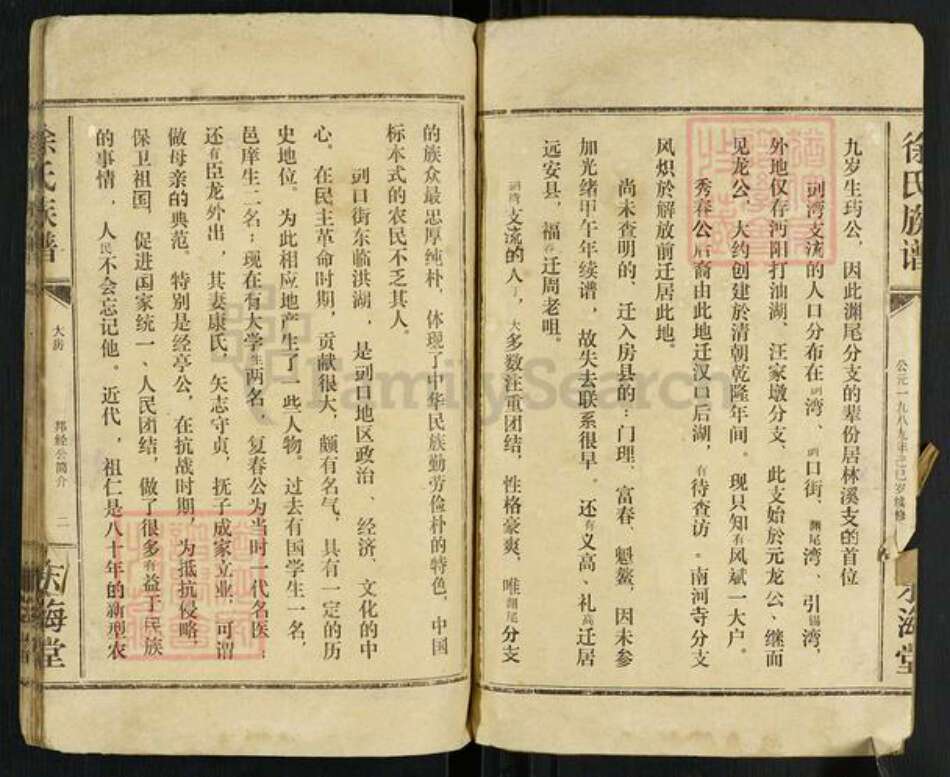 徐氏族谱
公元一九八九年己巳岁续修
东海堂
九岁生玙公，因此渊尾分支的辈份居林溪支的首位
剅湾支流的人口分布在剅湾、剅口街、渊尾湾、引锡湾，
外地仅存沔阳打油湖、汪家墩分支、此支始於元龙公、继而
见龙公，大约创建於清朝乾隆年间。现只知有风斌一大户。
秀春公后裔由此地迁汉口后湖，有待查访。南河寺分支
风炽於解放前迁居此地。
尚未查明的、迁入房县的：门理、富春、魁鳌，因未参
加光绪甲午年续谱，故失去联系很早。还有义高、礼高迁居
远安县，福春迁周老咀。
剅湾支流的人丁，大多数注重团结，性格豪爽，唯渊尾分支
的族众最忠厚纯朴，体现了中华民族勤劳俭朴的特色，中国
标本式的农民不乏其人。
剅口街东临洪湖，是剅口地区政治、经济、文化的中
心。在民主革命时期，贡献很大，颇有名气，具有一定的历
史地位。为此相应地产生了一些人物。过去有国学生一名，
邑庠生二名；现在有大学生两名，复春公为当时一代名医；
还有臣龙外出，其妻康氏，矢志守贞，抚子成家立业，可谓
做母亲的典范。特别是经亭公，在抗战时期，为抵抗侵略，
保卫祖国，促进国家统一、人民团结，做了很多有益于民族
的事情，人民不会忘记他。近代，祖仁是八十年的新型农
徐氏族谱
大房
邦经公简介
二
东海堂
FamilySearch